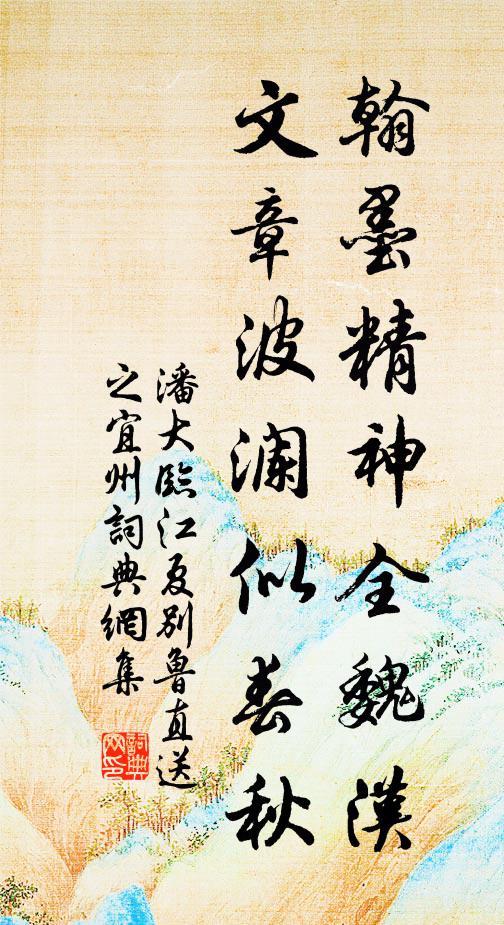 翰墨精神全魏漢
文章波澜似春秋
潘大臨江夏別魯直送
之宜州詞典網集
詞典
网印